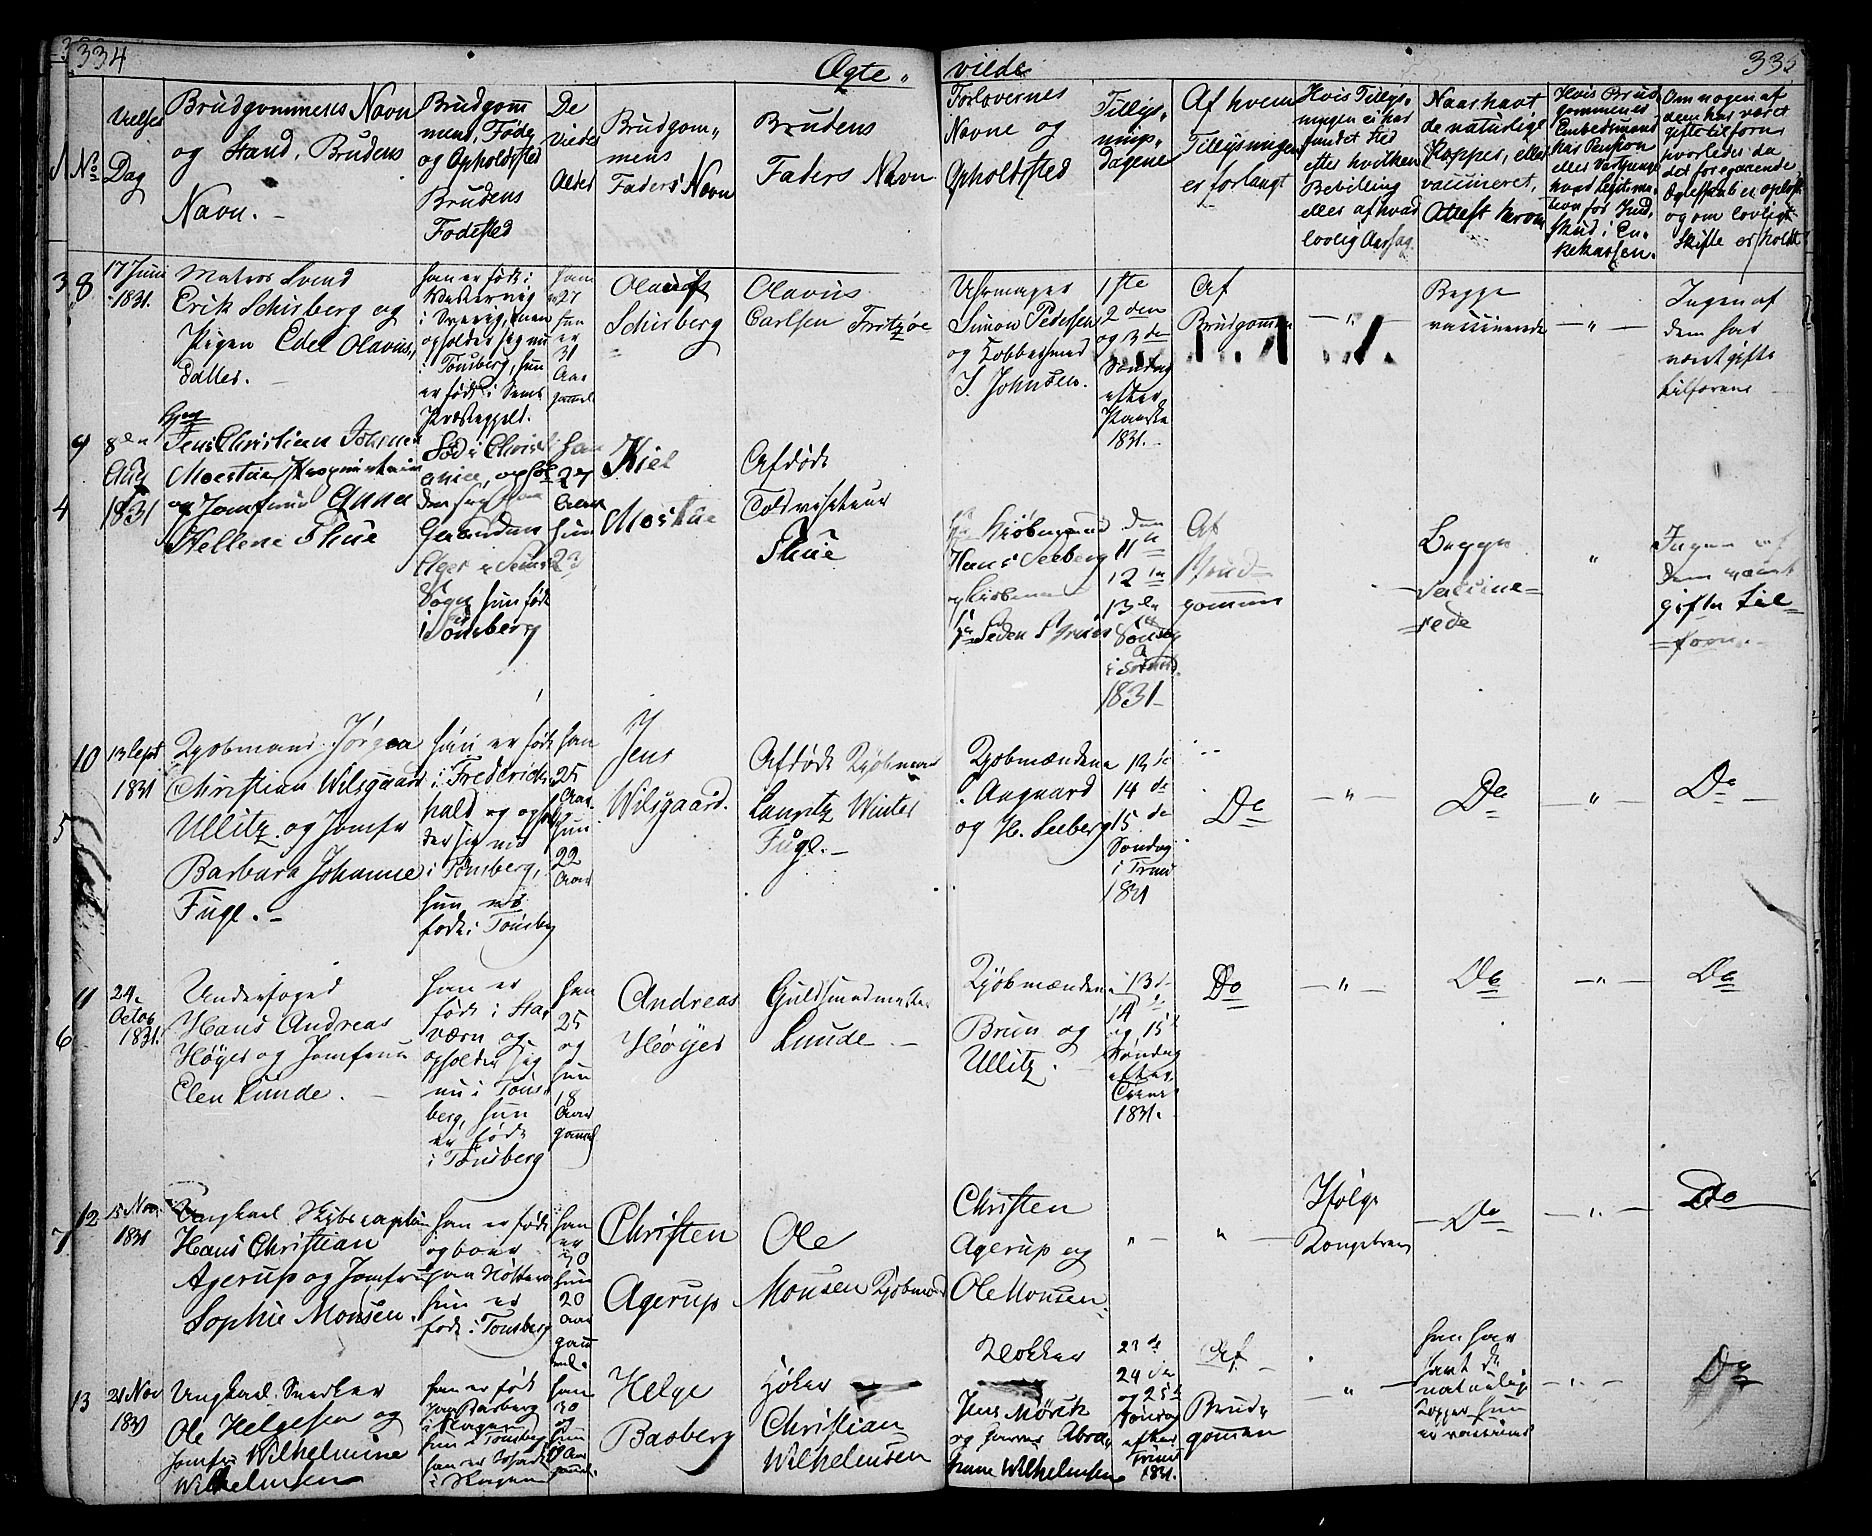 334
Ægte„
vilde
335
No
Vielses
Dag
Brudgommens Navn
og Stand, Brudens
Navn. –
Brudgom
mens Føde
og Opholdssted
Brudens
Fødested
De
Viedes
Alder
Brudgom„
mens
Faders Navn
Brudens
Faders Navn
Forlovernes
Navne og
Opholdsted
Tillys„
nings„
dagene
Af hvem
Tillysningen
er forlangt
Hvis Tillys„
ningen ei har
fundet sted
efter hvilken
Bevilling
eller af hvad
lovlig Aarsag
Naar havt
de naturlige
Kopper, eller
vaccineret,
Attest herom
Hvis Brud
gommen er
Embedsmand
har Pension
eller
hvad Legitima„
tion for Ind„
skud i En„
kekassen.
Om nogen af
dem har været
gifte tilforn
hvorledes da
det foregaaende
Ægteskab er opløst
og om lovligt
Skifte er holdt
3 8
17 Juni
1831.
Matros Svend
Erik Schirberg og
Pigen Edel Olavus„
datter. –
han er født i
Westervig
i Sverig, men
opholder sig nu
i Tonsberg, hun
er født i Sems
Præstegjeld.
han
27
hun
er
31
Aar
gammel
Olauf
Schirberg
Olavus
Carlsen Fritzøe
Uhrmager
Simon Pedersen
og Kobbersmed
S. Johnsen.
1ste
2den
og 3de
Søndag
efter
Paaske
1831. –
Af
Brudgommen
– „ –
Begge
vaccinerede
– „ –
Ingen af
dem har
været gifte
tilforene
9
4
8den
Aug
1831
Jens Christian Johnsen
Moestue
og Jomfrue Anna
Hellene Thue
Fød i Christi
ania, ophol
der sig paa
Gaarden
Ager i Sems
Sogn hun født
i Tonsberg
han
27
Aar
hun
23
Kiel
Moestue
Afdøde
Toldvisiteur
Thue
Kiøbmand
Hans Seeberg
og
den
11te
12te
13de
Søndag
1831 –
Af
Brud–
gommen
Begge
vaccine–
rede
„
Ingen af
dem været
gifte til–
forn. –
10
5
13 Sept
1831
Kjøbmand Jørgen
Christian Wilsgaard
Ullitz og Jomfr
Barbara Johanne
Fugl. –
han er født
i Frederichs
hald og ophol
der sig nu
i Tonsberg,
hun er
født i Tonsberg
han
25
Aar
hun
22
Aar
Jens
Wilsgaard.
Afdøde Kjøbmand
Lauritz Winter
Fugl. –
Kjøbmændene
Aagaard
og H. Seeberg
13de
14de
15de
Søndag
i Trinit
1831
Do
– „ –
Do
– „ –
Do
11
6
24.
Octob
1831.
Underfoged
Hans Andreas
Høyer og Jomfrue
Elen Lunde. –
han er
født i Sta„
værn og
opholder sig
nu i Tons„
berg, hun
er født
i Tonsberg
han
25
og
hun
18
Aar
gammel
Andreas
Høyer
Guldsmedmester
Lunde. –
Kjøbmændene
Brun og
Ullitz. –
13de
14de
og 15de
Søndag
efter
Trinit
1831.
Do
– „ –
Do
– „ –
Do
12
7
15 Nov.
1831
Ungkarl Skibscaptain
Hans Christian
Agerup og Jomfru
Sophie Monsen.
han er født
og boer
paa Nøtterø
hun er
født i Tonsberg
han
er
30
hun
20
Aar
gam
mel.
Christen
Agerup
Ole
Monsen Kjøbmand
Christen
Agerup og
Ole Monsen.
„ –
„ –
Ifølge
Kongebrev
– Do –
– „ –
Do
13
21 Nov
1831
Ungkarl Snedker
Ole Helgesen og
Jomfr Wilhelmine
Wilhelmsen
han er født
paa Basberg
i Slagen
hun i Tonsberg
i Slagen
han
30
og
hun
Aar
gammel.
Helge
Basberg
Høker
Christian
Wilhelmsen
Klokker
Jens Mørck
og farver Abra„
ham Wilhelmsen
23de
24de
og 25de
Søndag
efter
Trinit
1831.
Af
Brud„
gommen
– „ –
han har
havt de
naturlige
Kopper hun
er vaccineret
– „ –
Do